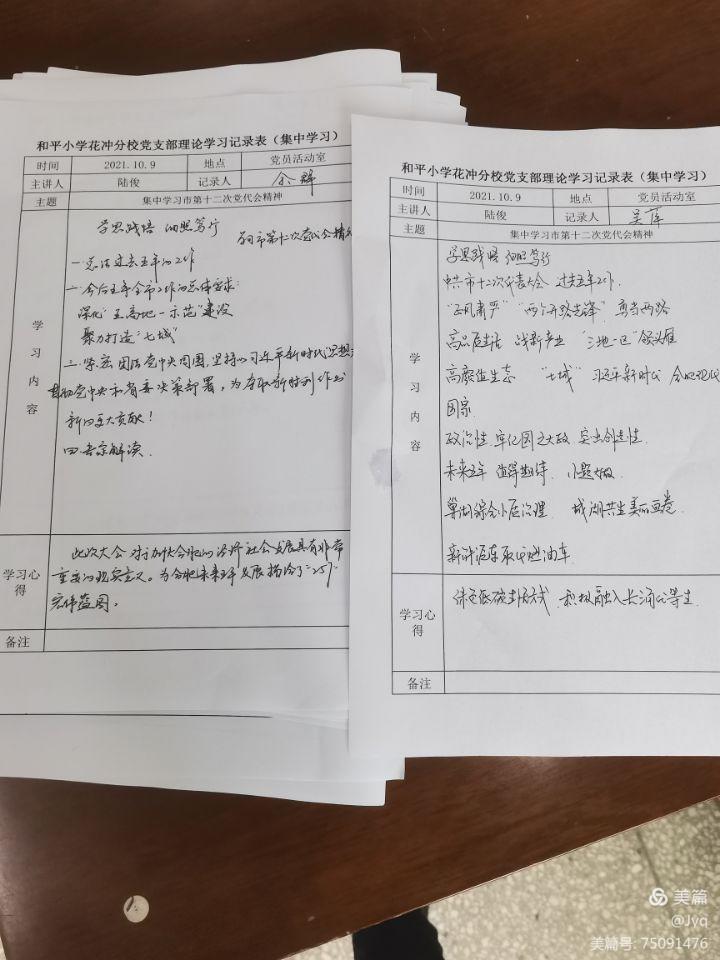 和平小学花冲分校党支部理论学习记录表（集中学习）
时间 2021.10.9 地点 党员活动室
主讲人 陆俊 记录人 余群
主题 集中学习市第十二次党代会精神
学习内容
学思践悟 细照笃行
市第十二次党代会精
一、总结过去五年的工作
今后五年全市工作的总体要求:
深化"五高地一示范"建设
聚力打造"七城"
三、紧密团结党中央周围,坚持以习近平新时代思想
党中央和省委决策部署,为夺取新时代
新的更大贡献!
四、解读.
学习心得
此次大会对于加快合肥的经济社会发展具有非常
重要的现实意义。为合肥未来五年发展描绘了
宏伟蓝图。
备注
和平小学花冲分校党支部理论学习记录表（集中学习）
时间 2021.10.9 地点 党员活动室
主讲人 陆俊 记录人 吴萍
主题 集中学习市第十二次党代会精神
学习内容
学思践悟 细照笃行
中共市十二次代表大会 过去五年工作.
"正风肃严" "两个开路先锋"
高品质生活 战新产业 "三地一区"领头雁
高颜值生态 "七城" 习近平新时代 合肥现代
国家.
政治性 牢记国之大 突出创造性.
未来五年 值得期待. 小题大做.
巢湖综合 治理. 城湖共生美丽画卷.
新能源车取代燃油车.
学习心得
低碳 方式. 积极融入长
备注
美篇
@Jyq
美篇号: 75091476